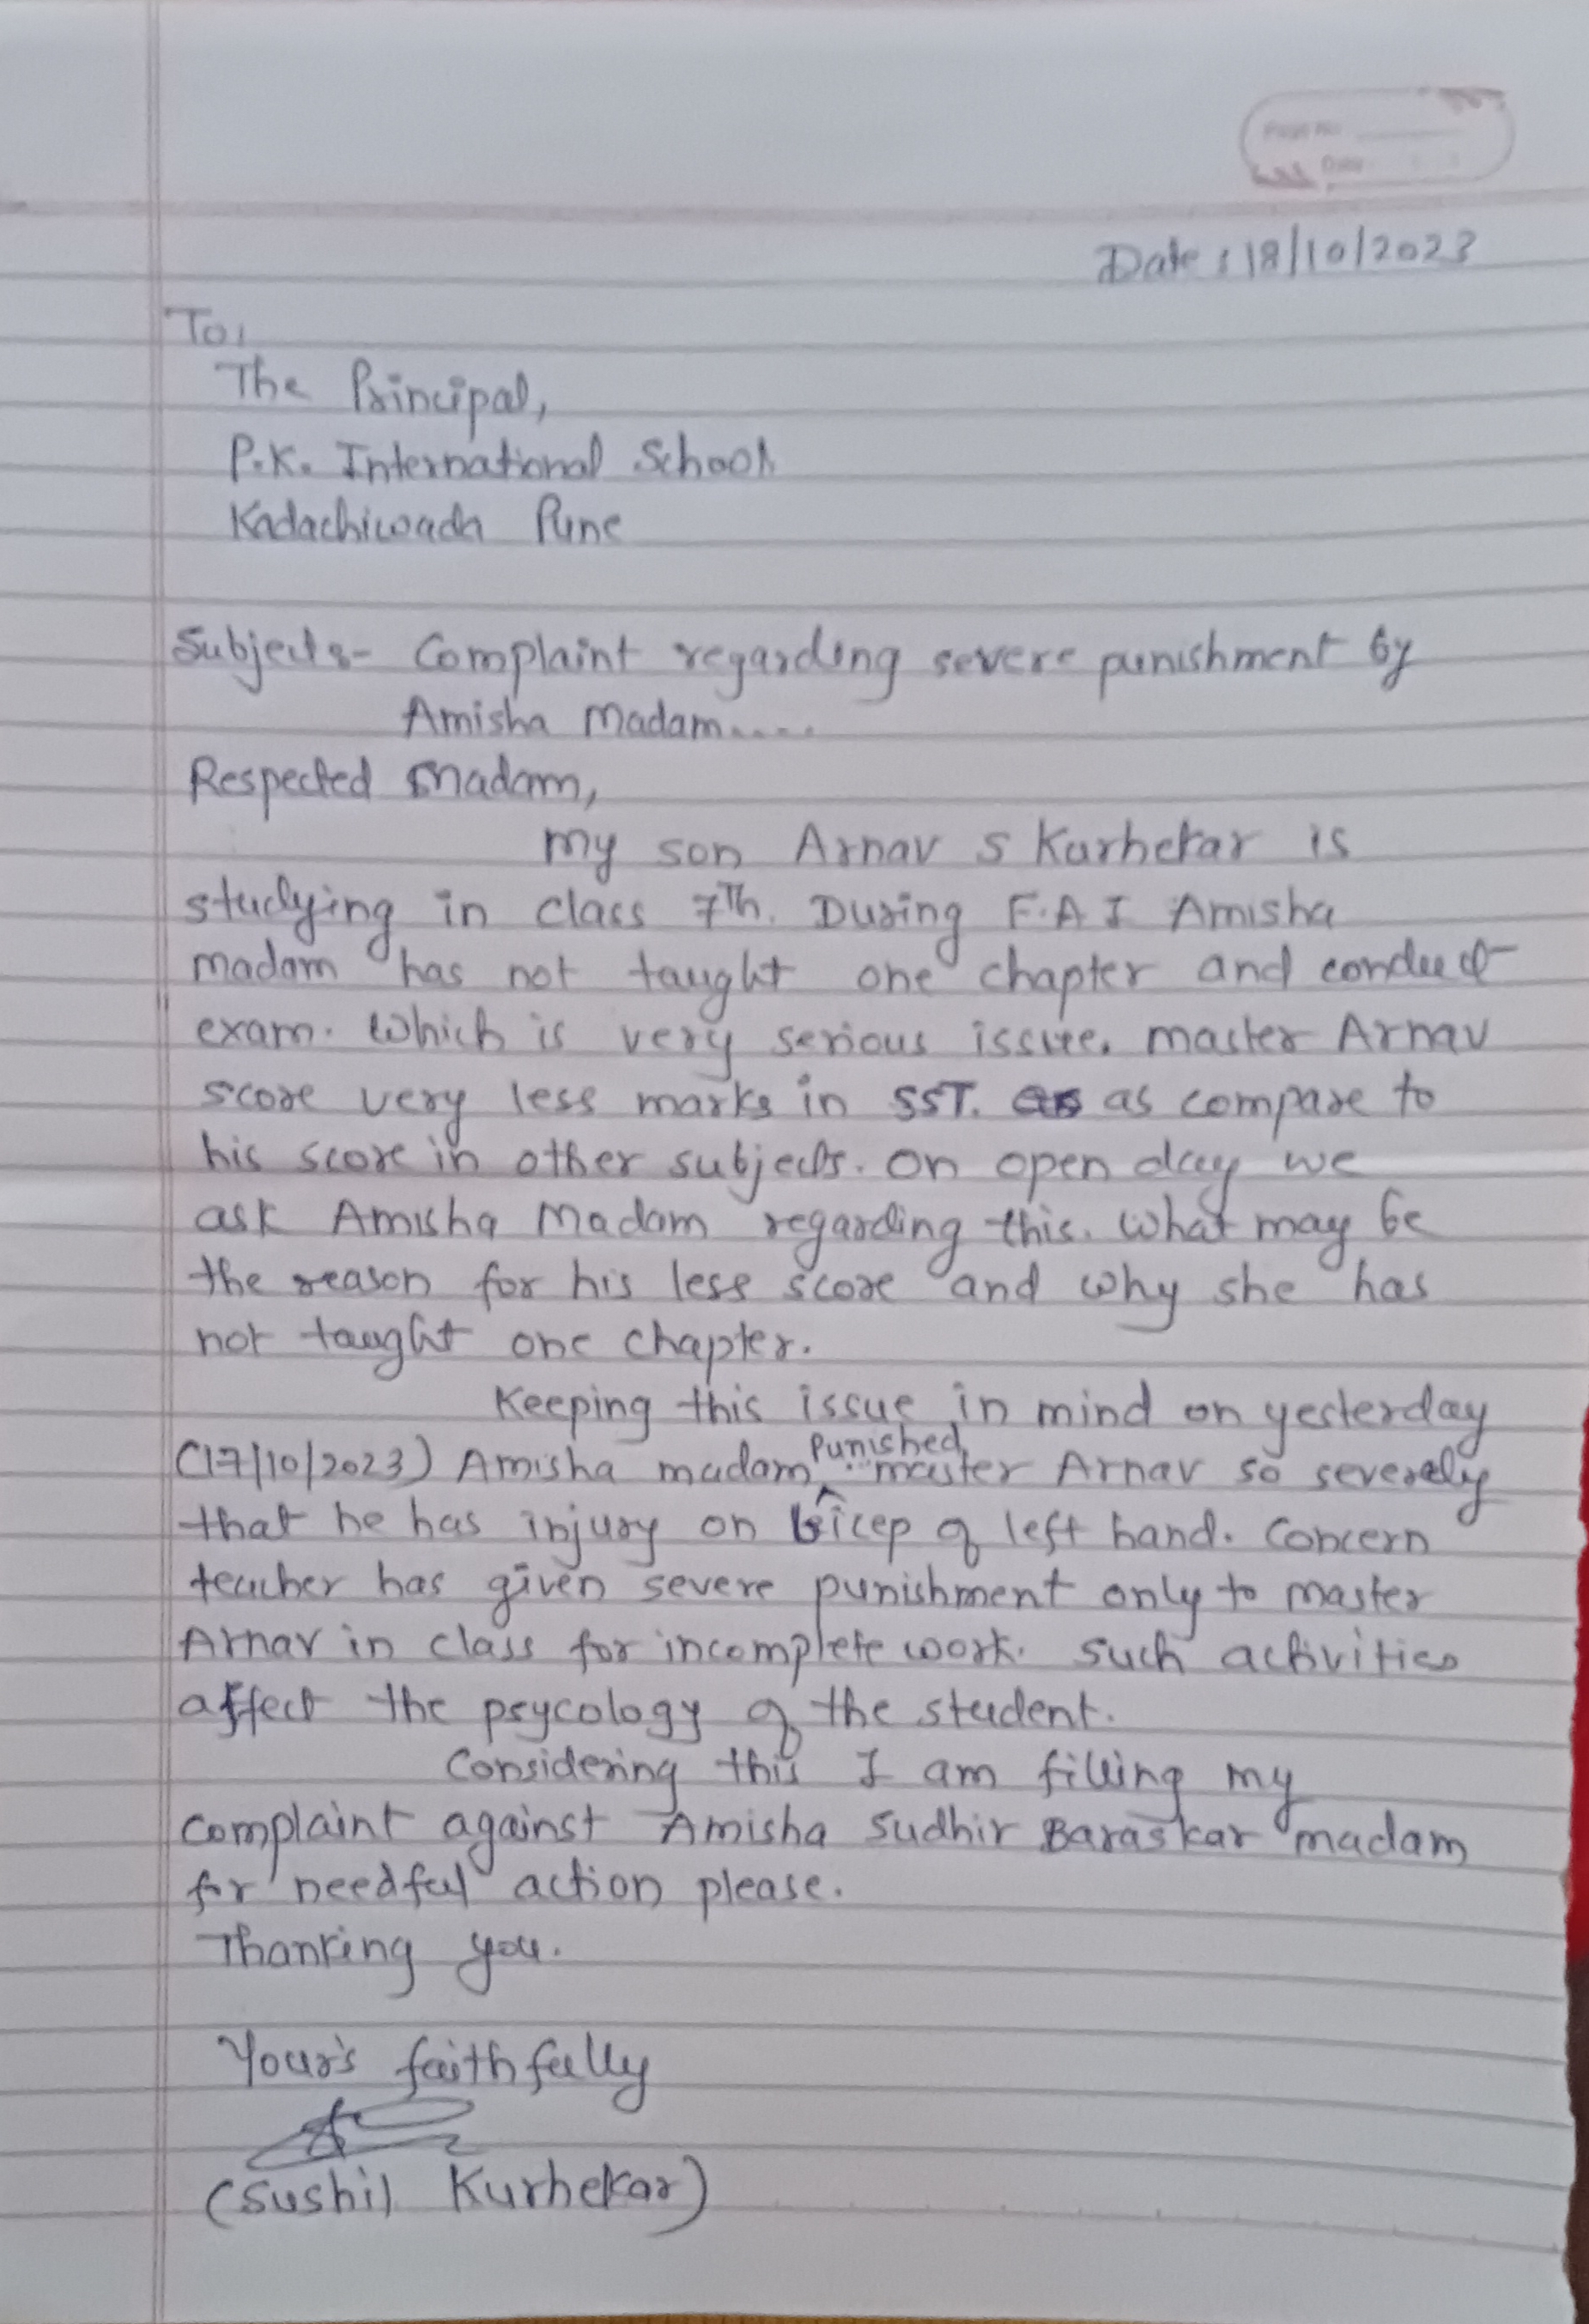 Page No.
Date
Date : 18/10/2023
To,
The Principal,
P.K. International School
Kadachiwada Pune
Subject:- Complaint regarding severe punishment by
Amisha Madam.....
Respected Madam,
My son Arnav S Kurhekar is
studying in class 7Th. During F.A I Amisha
madam has not taught one chapter and conduct
exam. Which is very serious issue. master Arnav
score very less marks in SST. as compare to
his score in other subjects. On open day we
ask Amisha Madam regarding this. What may be
the reason for his less score and why she has
not taught one chapter.
Keeping this issue in mind on yesterday
(17/10/2023) Amisha madam Punished master Arnav so severely
that he has injury on bicep of left hand. Concern
teacher has given severe punishment only to master
Arnav in class for incomplete work. Such activities
affect the psycology of the student.
Considering this I am filling my
complaint against Amisha Sudhir Baraskar madam
for needful action please.
Thanking you.
Your's faithfully
(Sushil Kurhekar)